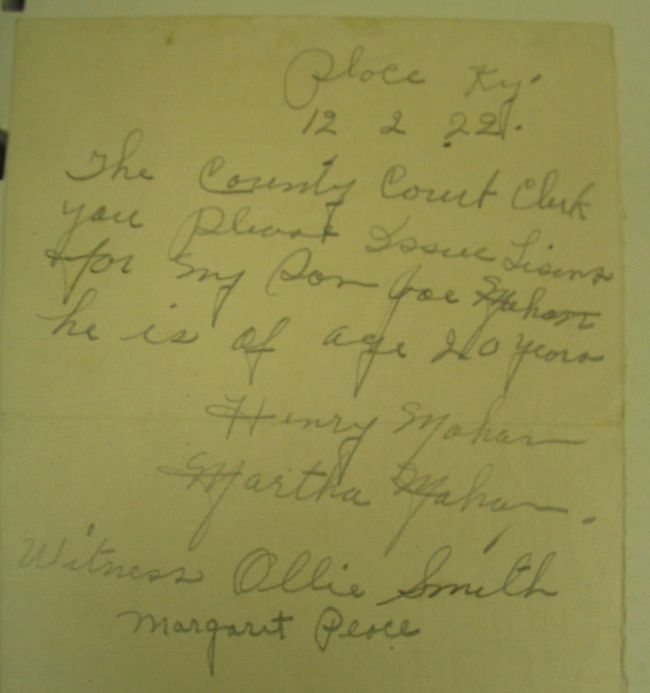 Place Ky.
12 2 22.
The County Court Clerk
you Pleast Issue Lisens
for my Son Joe Mahan
he is of age 20 years
Henry Mahan
Martha Mahan.
Witness Ollie Smith
Margaret Peace